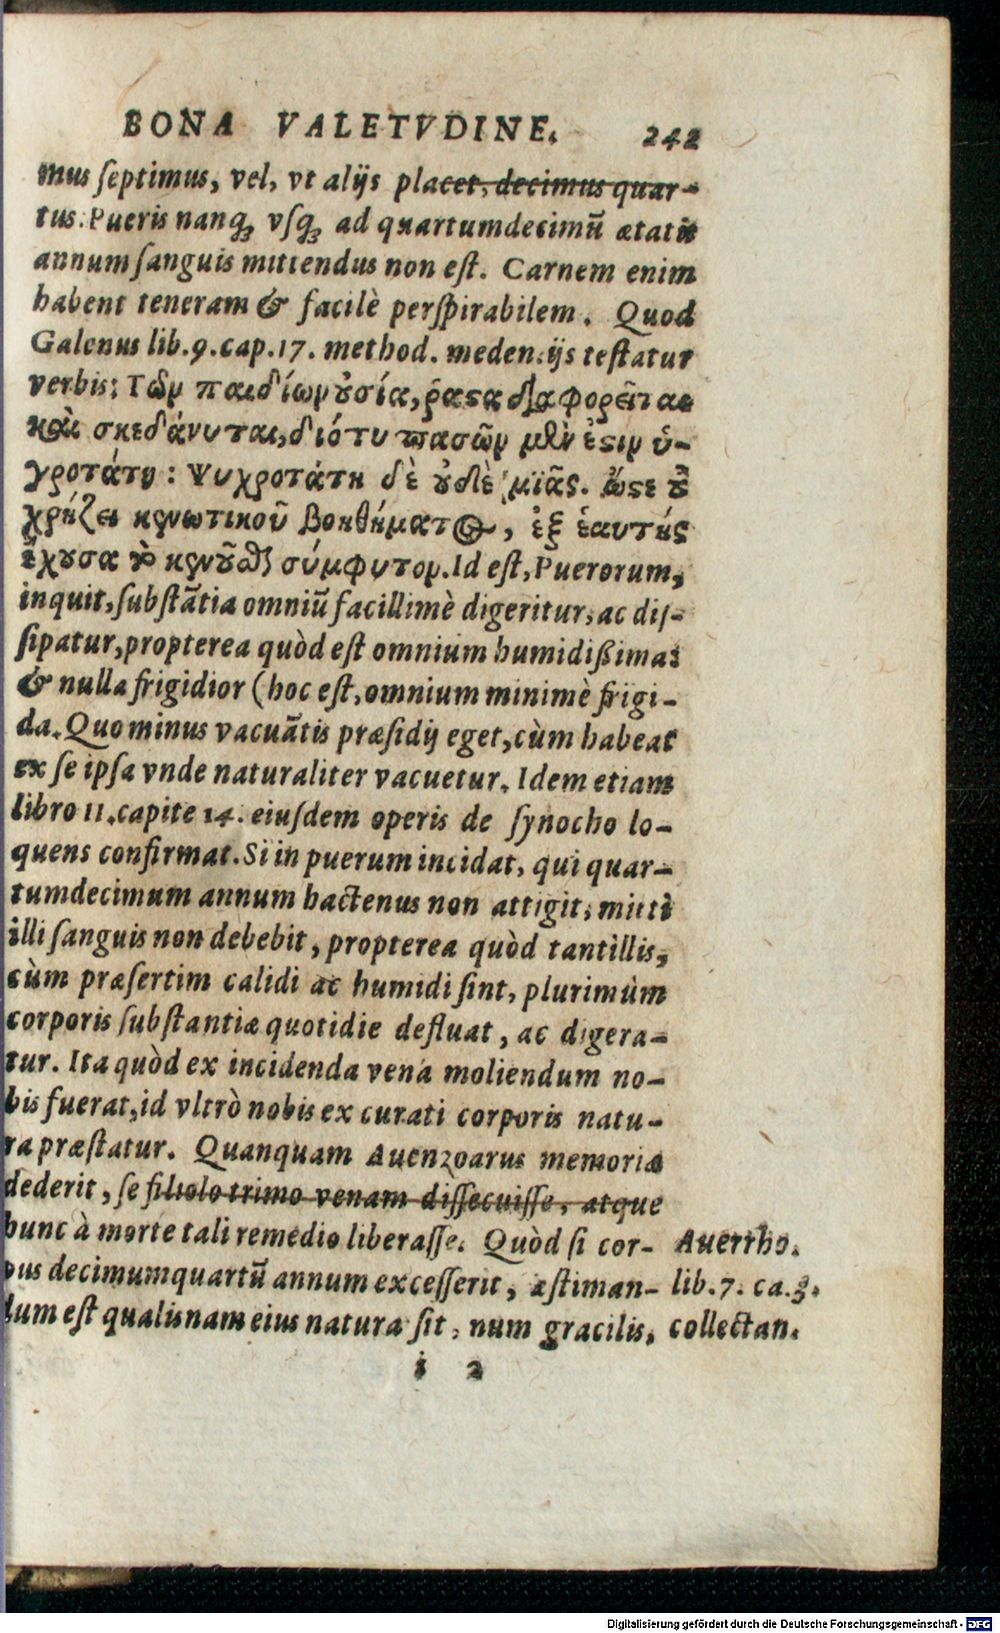 BONA VALETVDINE. 242
mus ſeptimus, vel, vt alijs placet, decimus quar-
tus. Pueris nanq; vſq; ad quartumdecimū ætatis
annum ſanguis mittendus non eſt. Carnem enim
habent teneram & facilè perſpirabilem. Quod
Galenus lib. 9. cap. 17. method. meden. ijs teſtatur
verbis: Τῶν παιδίων ȣσία, ῥᾷςα διαφορεῖται
καὶ σκεδάνυται, διότι πασῶν μὲν ἐςιν ὑ-
γροτάτη: Ψυχροτάτη δὲ ȣδὲ μιᾶς. ὥςε ȣ̓
χρῄζει κενωτικοῦ βοηθήματος, ἐξ ἑαυτῆς
ἔχȣσα τὸ κενȣ͂σθαι σύμφυτον. Id eſt, Puerorum,
inquit, ſubſtātia omniū facillimè digeritur, ac diſ-
ſipatur, propterea quòd eſt omnium humidißima:
& nulla frigidior (hoc eſt, omnium minimè frigi-
da. Quo minus vacuātis præſidij eget, cùm habeat
ex ſe ipſa vnde naturaliter vacuetur. Idem etiam
libro 11. capite 14. eiuſdem operis de ſynocho lo-
quens confirmat. Si in puerum incidat, qui quar-
tumdecimum annum hactenus non attigit, mitti
illi ſanguis non debebit, propterea quòd tantillis,
cùm præſertim calidi ac humidi ſint, plurimùm
corporis ſubſtantiæ quotidie defluat, ac digera-
tur. Ita quòd ex incidenda vena moliendum no-
bis fuerat, id vltrò nobis ex curati corporis natu-
ra præſtatur. Quanquam Auenzoarus memoriæ
dederit, ſe filiolo trimo venam diſſecuiſſe, atque
hunc à morte tali remedio liberaſſe. Quòd ſi cor-
pus decimumquartū annum exceſſerit, æſtiman-
dum eſt qualisnam eius natura ſit, num gracilis,
Auerrho.
lib. 7. ca. 3.
collectan.
i 2
Digitalisierung gefördert durch die Deutsche Forschungsgemeinschaft - DFG